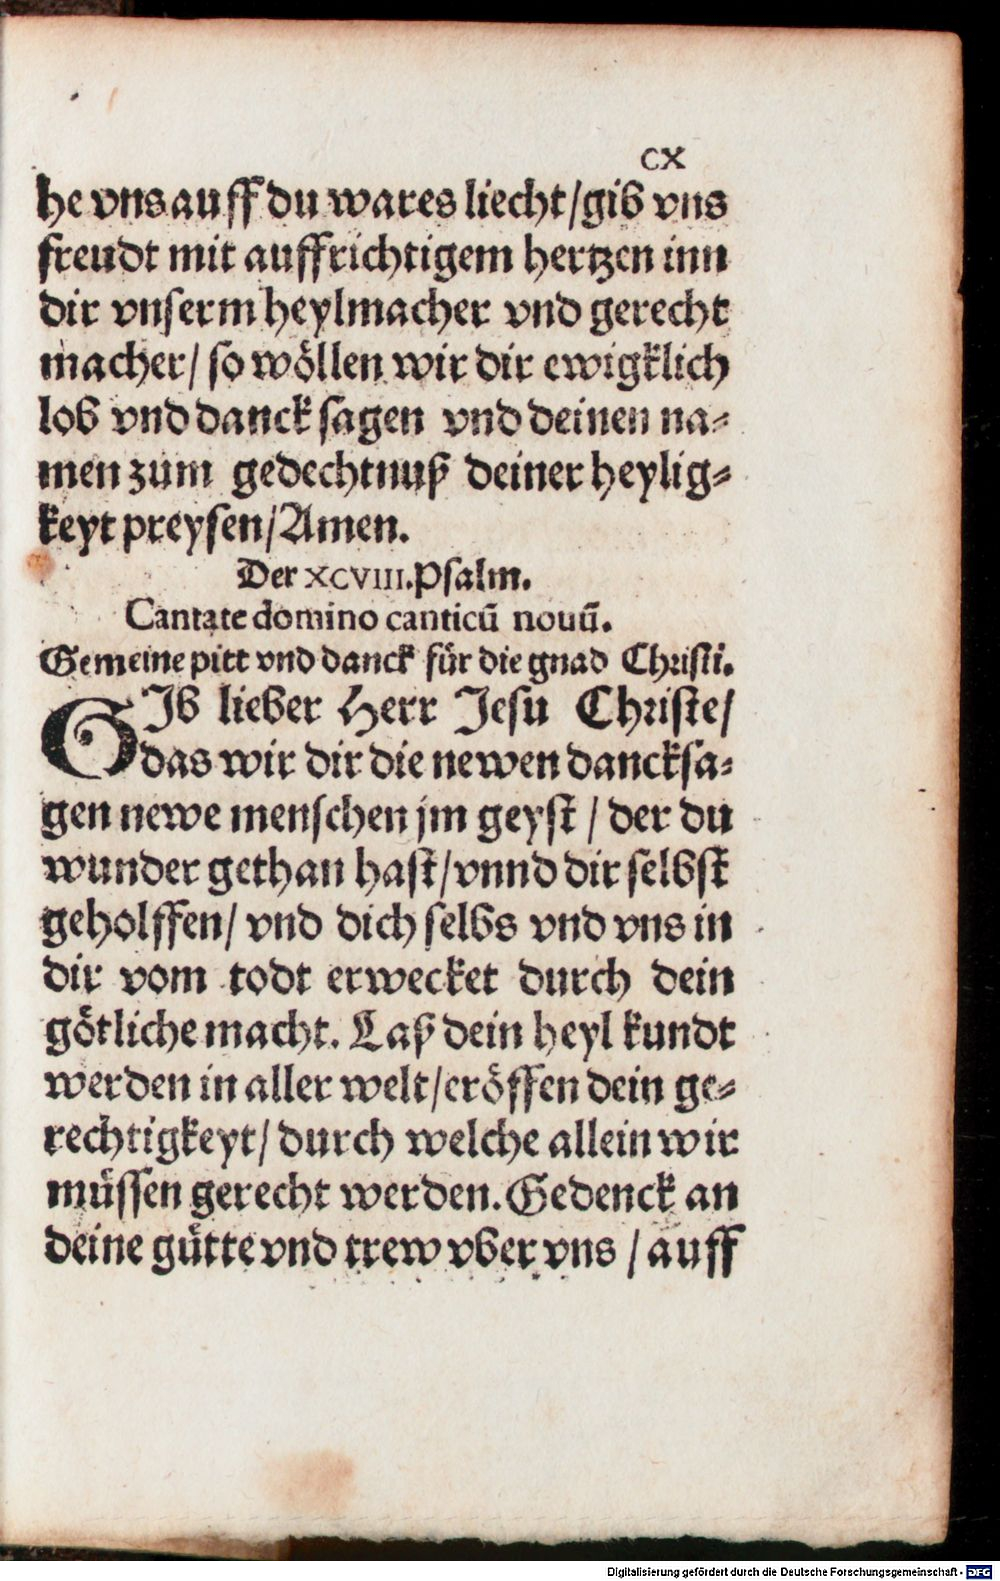 CX
he vns auff du wares liecht/gib vns
freudt mit auffrichtigem hertzen inn
dir vnserm heylmacher vnd gerecht
macher/ so wöllen wir dir ewigklich
lob vnd danck sagen vnd deinen na⸗
men zum gedechtnuß deiner heylig⸗
keyt preysen/Amen.
Der XCVIII. Psalm.
Cantate domino canticū nouū.
Gemeine pitt vnd danck für die gnad Christi.
GIb lieber Herr Jesu Christe/
das wir dir die newen dancksa⸗
gen newe menschen jm geyst / der du
wunder gethan hast/vnnd dir selbst
geholffen/ vnd dich selbs vnd vns in
dir vom todt erwecket durch dein
götliche macht. Laß dein heyl kundt
werden in aller welt/eröffen dein ge⸗
rechtigkeyt/ durch welche allein wir
müssen gerecht werden. Gedenck an
deine gütte vnd trew vber vns / auff
Digitalisierung gefördert durch die Deutsche Forschungsgemeinschaft - DFG